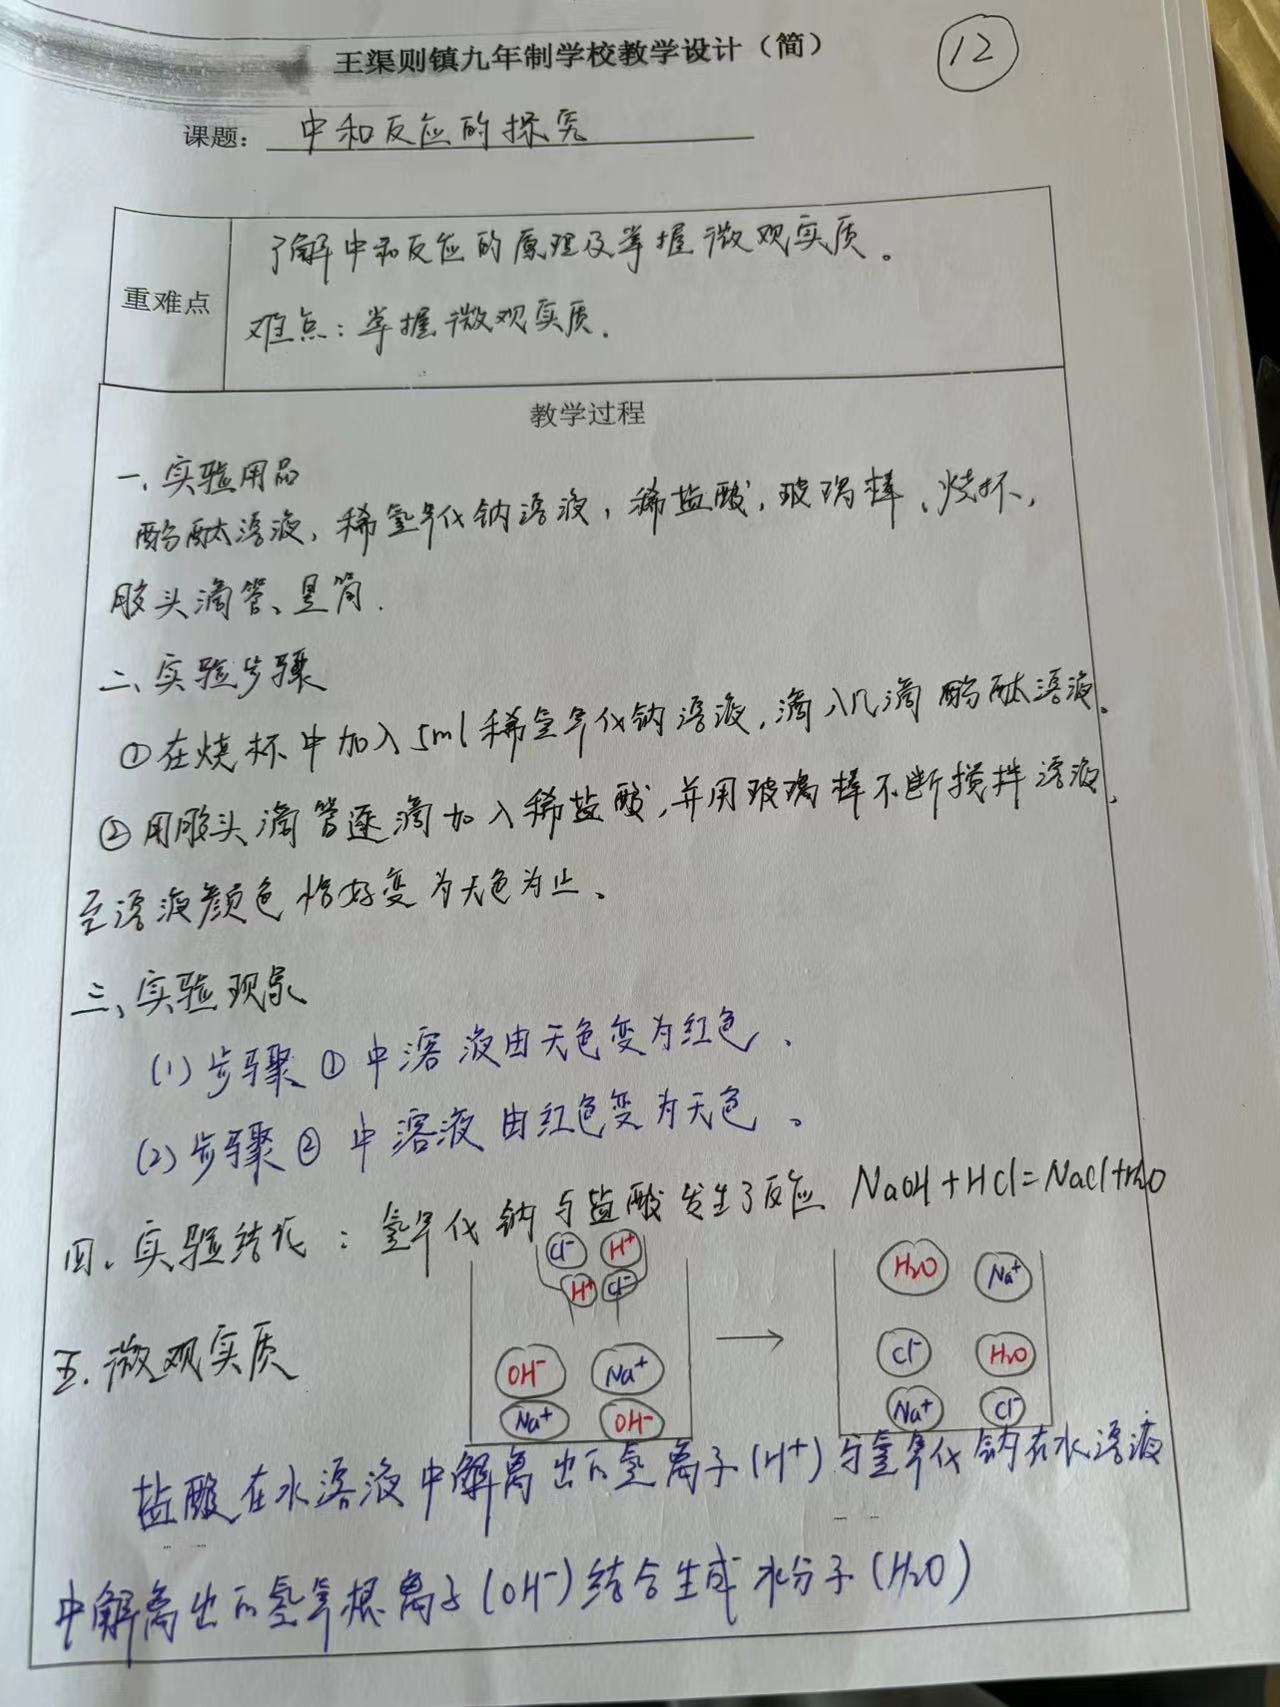 王渠则镇九年制学校教学设计（简）
12
课题： 中和反应的探究
了解中和反应的原理及掌握微观实质。
重难点
难点：掌握微观实质.
教学过程
一、实验用品
酚酞溶液、稀氢氧化钠溶液，稀盐酸，玻璃棒、烧杯，
胶头滴管、量筒.
二、实验步骤
①在烧杯中加入5ml稀氢氧化钠溶液，滴入几滴酚酞溶液。
②用胶头滴管逐滴加入稀盐酸，并用玻璃棒不断搅拌溶液，
至溶液颜色恰好变为无色为止。
三、实验现象
(1)步骤①中溶液由无色变为红色、
(2)步骤②中溶液由红色变为无色。
四、实验结论：氢氧化钠与盐酸发生了反应 NaOH+HCl=NaCl+H₂O
Cl⁻ H⁺
H⁺ Cl⁻
H₂O Na⁺
五.微观实质
OH⁻ Na⁺
Cl⁻ H₂O
Na⁺ OH⁻
Na⁺ Cl⁻
盐酸在水溶液中解离出的氢离子(H⁺)与氢氧化钠在水溶液
中解离出的氢氧根离子(OH⁻)结合生成水分子(H₂O)